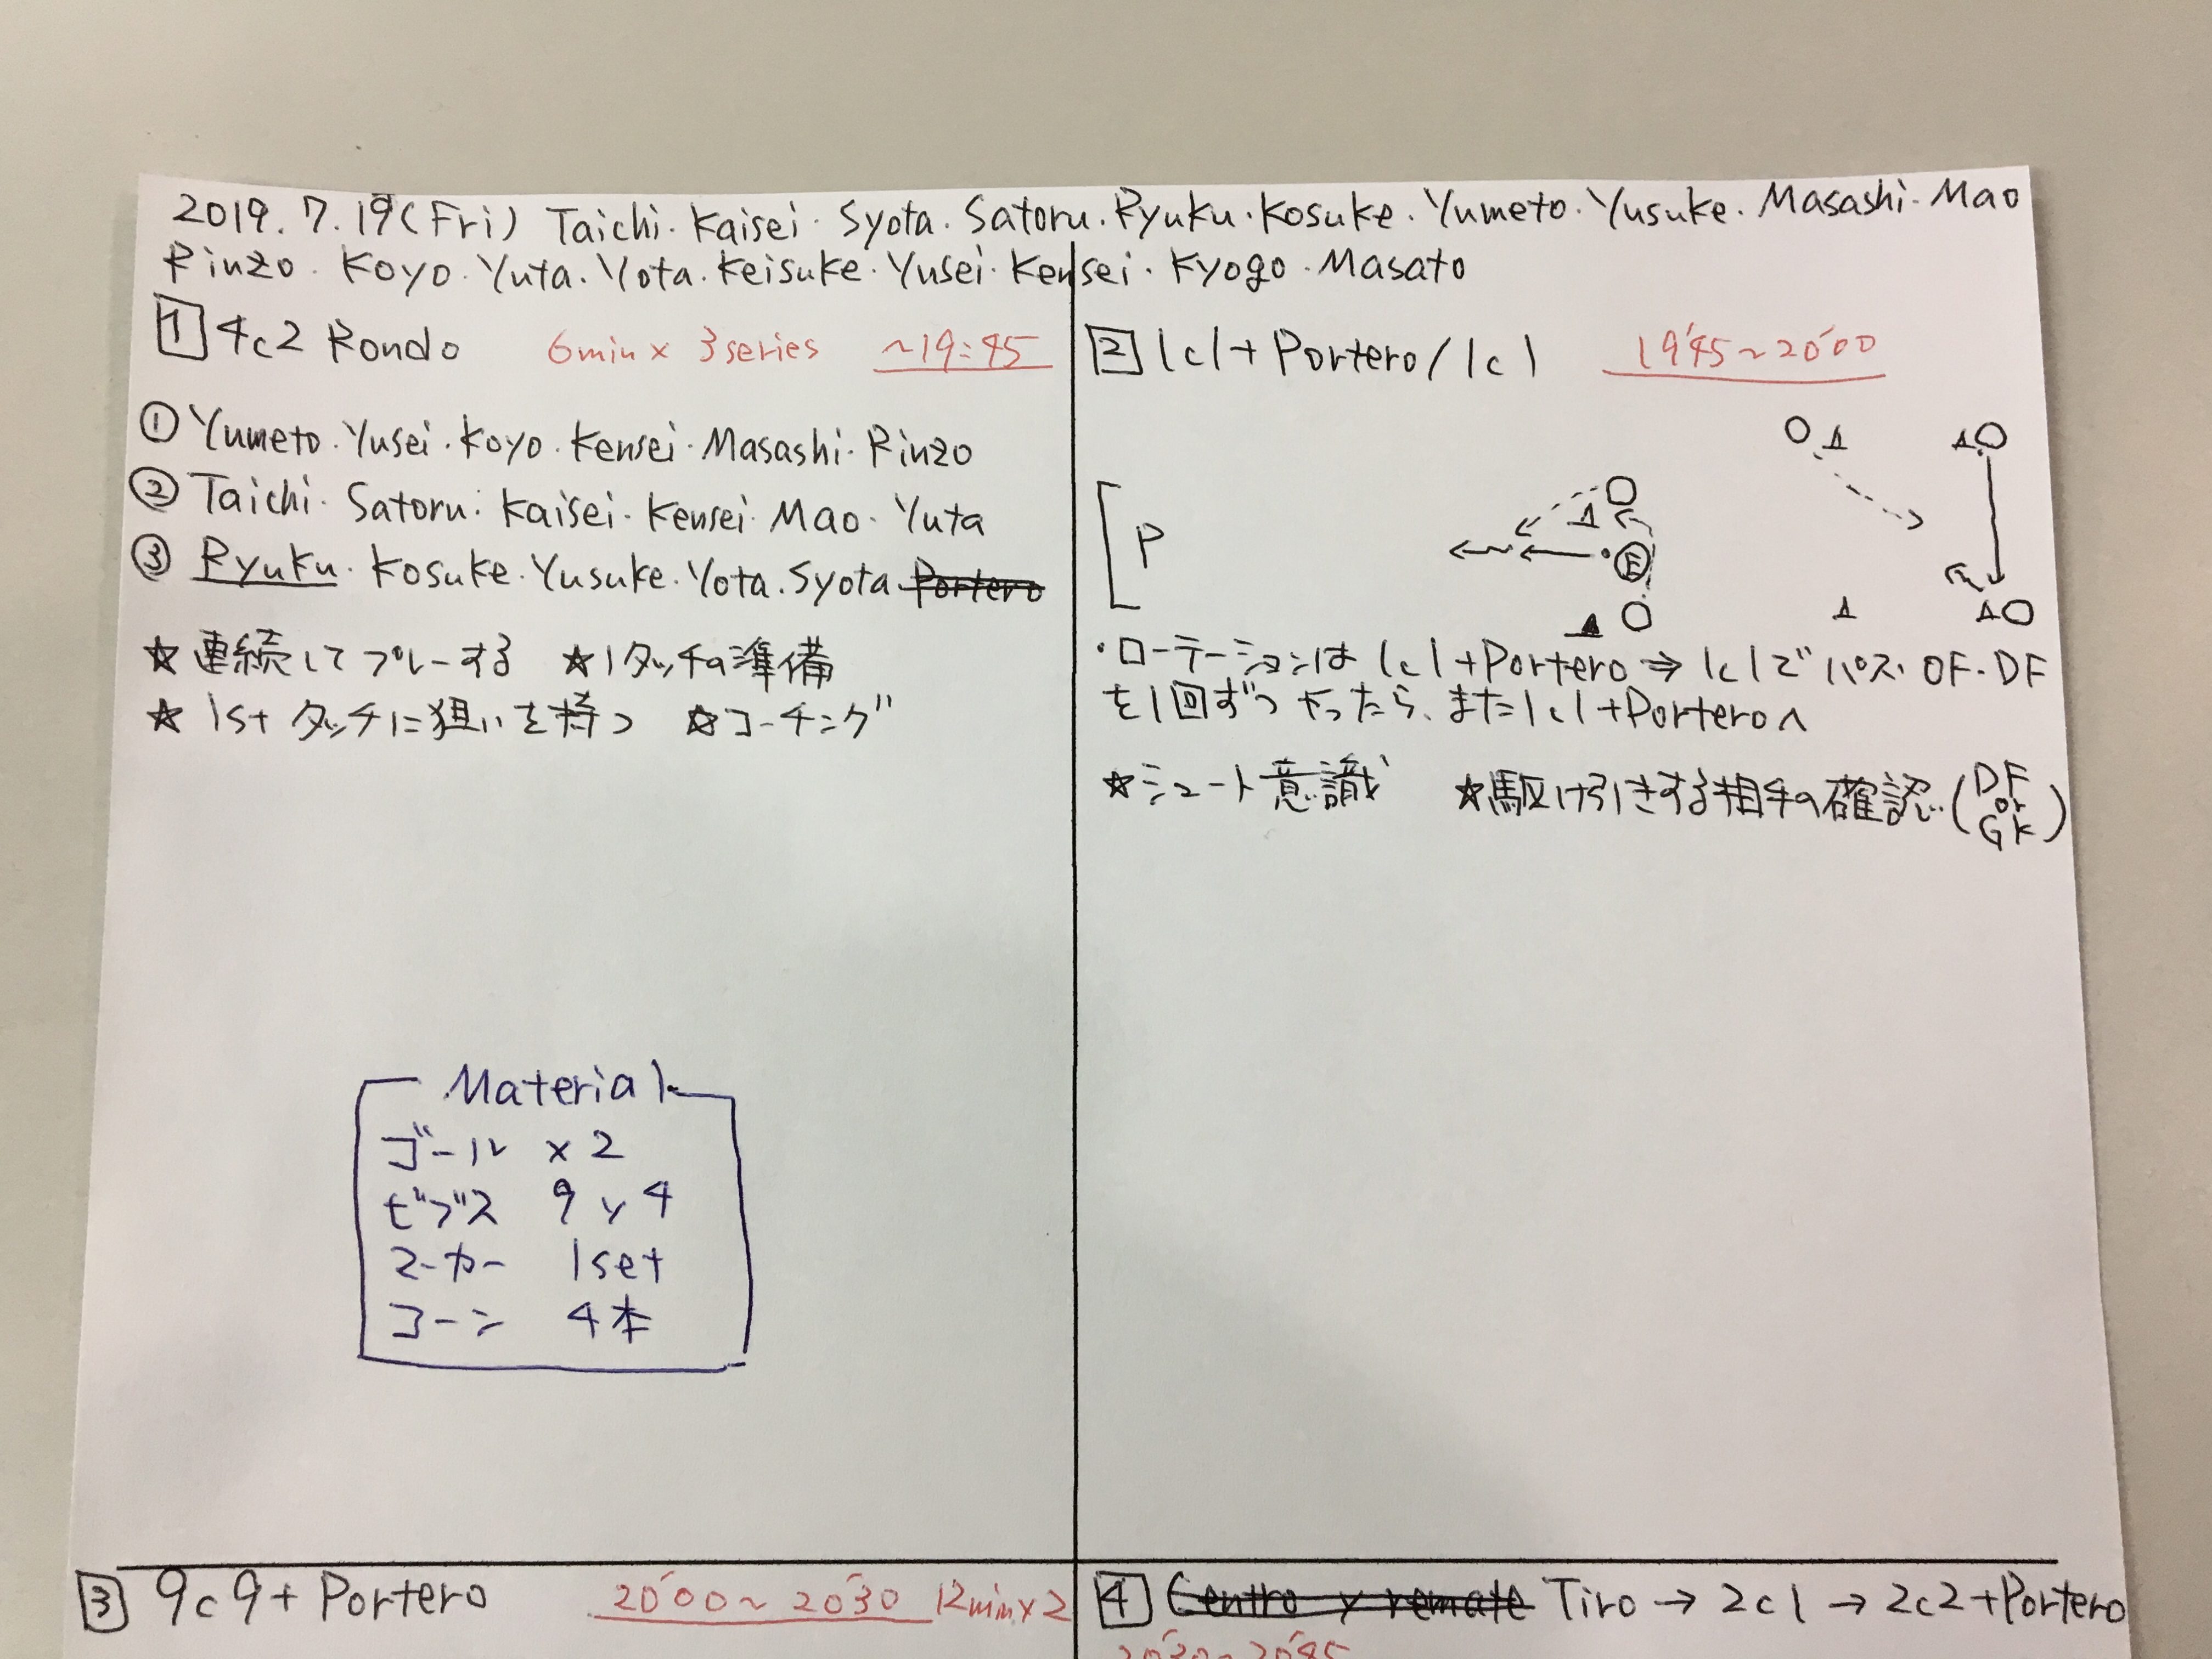 2019.7.19(Fri) Taichi・Kaisei・Syota・Satoru・Ryuku・Kosuke・Yumeto・Yusuke・Masashi・Mao
Rinzo・Koyo・Yuta・Yota・Keisuke・Yusei・Kensei・Kyogo・Masato
1 4c2 Rondo 6min×3series ~19:45
① Yumeto・Yusei・Koyo・Kensei・Masashi・Rinzo
② Taichi・Satoru・Kaisei・Kensei・Mao・Yuta
③ Ryuku・Kosuke・Yusuke・Yota・Syota Portero
☆連続してプレーする ☆1タッチの準備
☆1stタッチに狙いを持つ ☆コーチング
Material
ゴール ×2
ビブス 9 y 4
マーカー 1set
コーン 4本
2 1c1+Portero/1c1 19'45~20'00
P
E
・ローテーションは1c1+Portero⇒1c1でパス・OF・DF
を1回ずつやったら、また1c1+Porteroへ
☆シュート意識 ☆駆け引きする相手の確認(DF or GK)
3 9c9+Portero 20'00~20'30 12min×2
4 Centro y remate Tiro→2c1→2c2+Portero
20'30~20'45